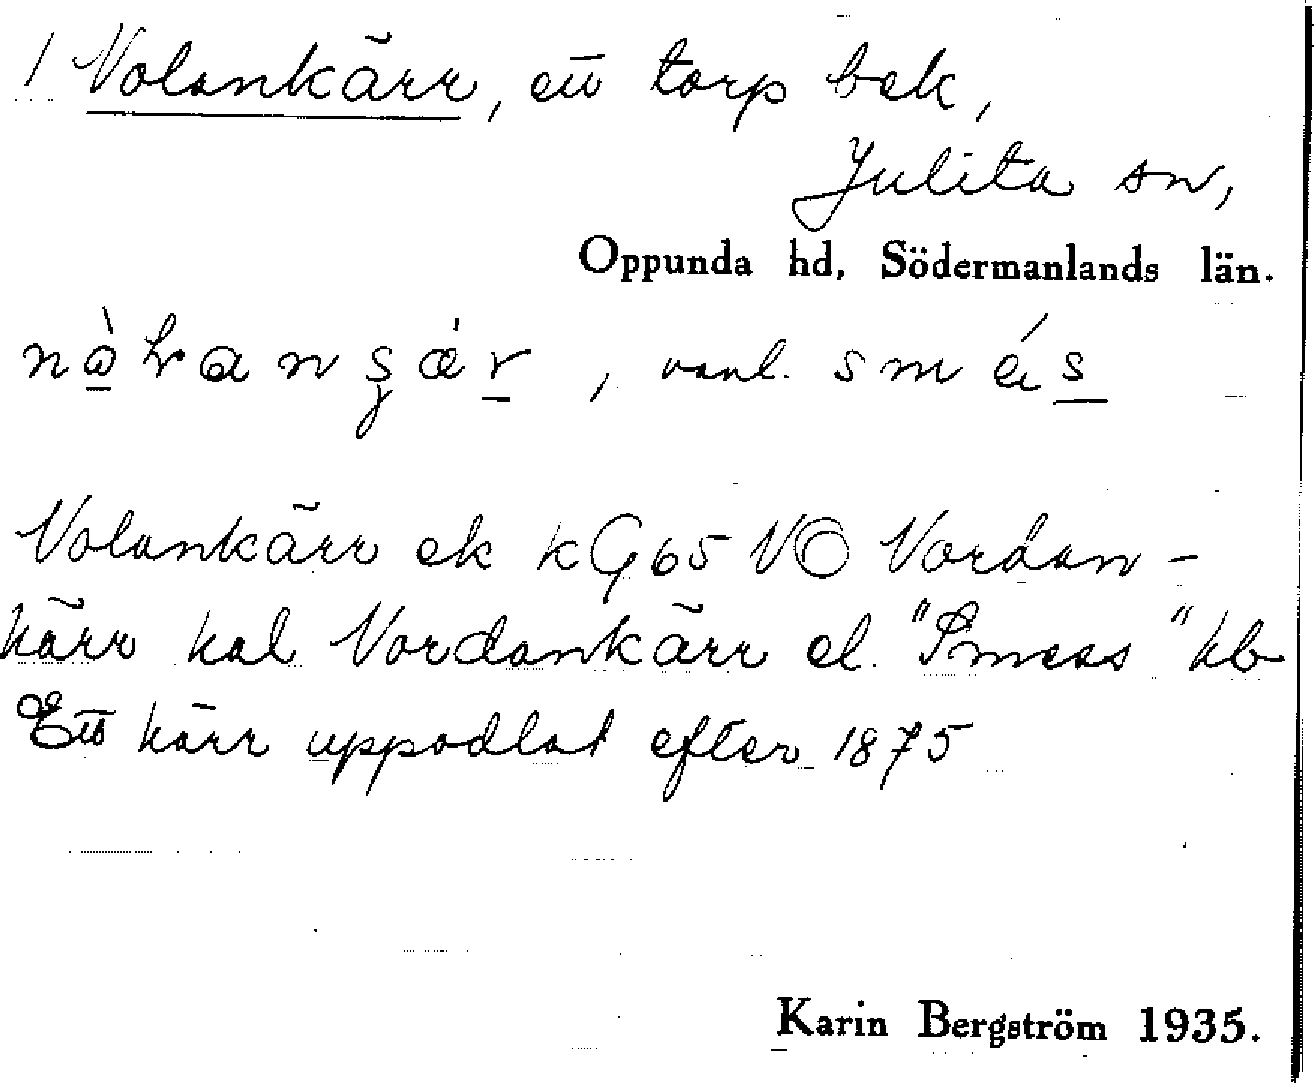 1 Nolankärr, ett torp bek,
Julita sn,
Oppunda hd, Södermanlands län.
vanl.
Nolankärr ek kG65 NO Nordan-
kärr kal Nordankärr el. "Smess" kb
Ett kärr uppodlat efter 1875
Karin Bergström 1935.